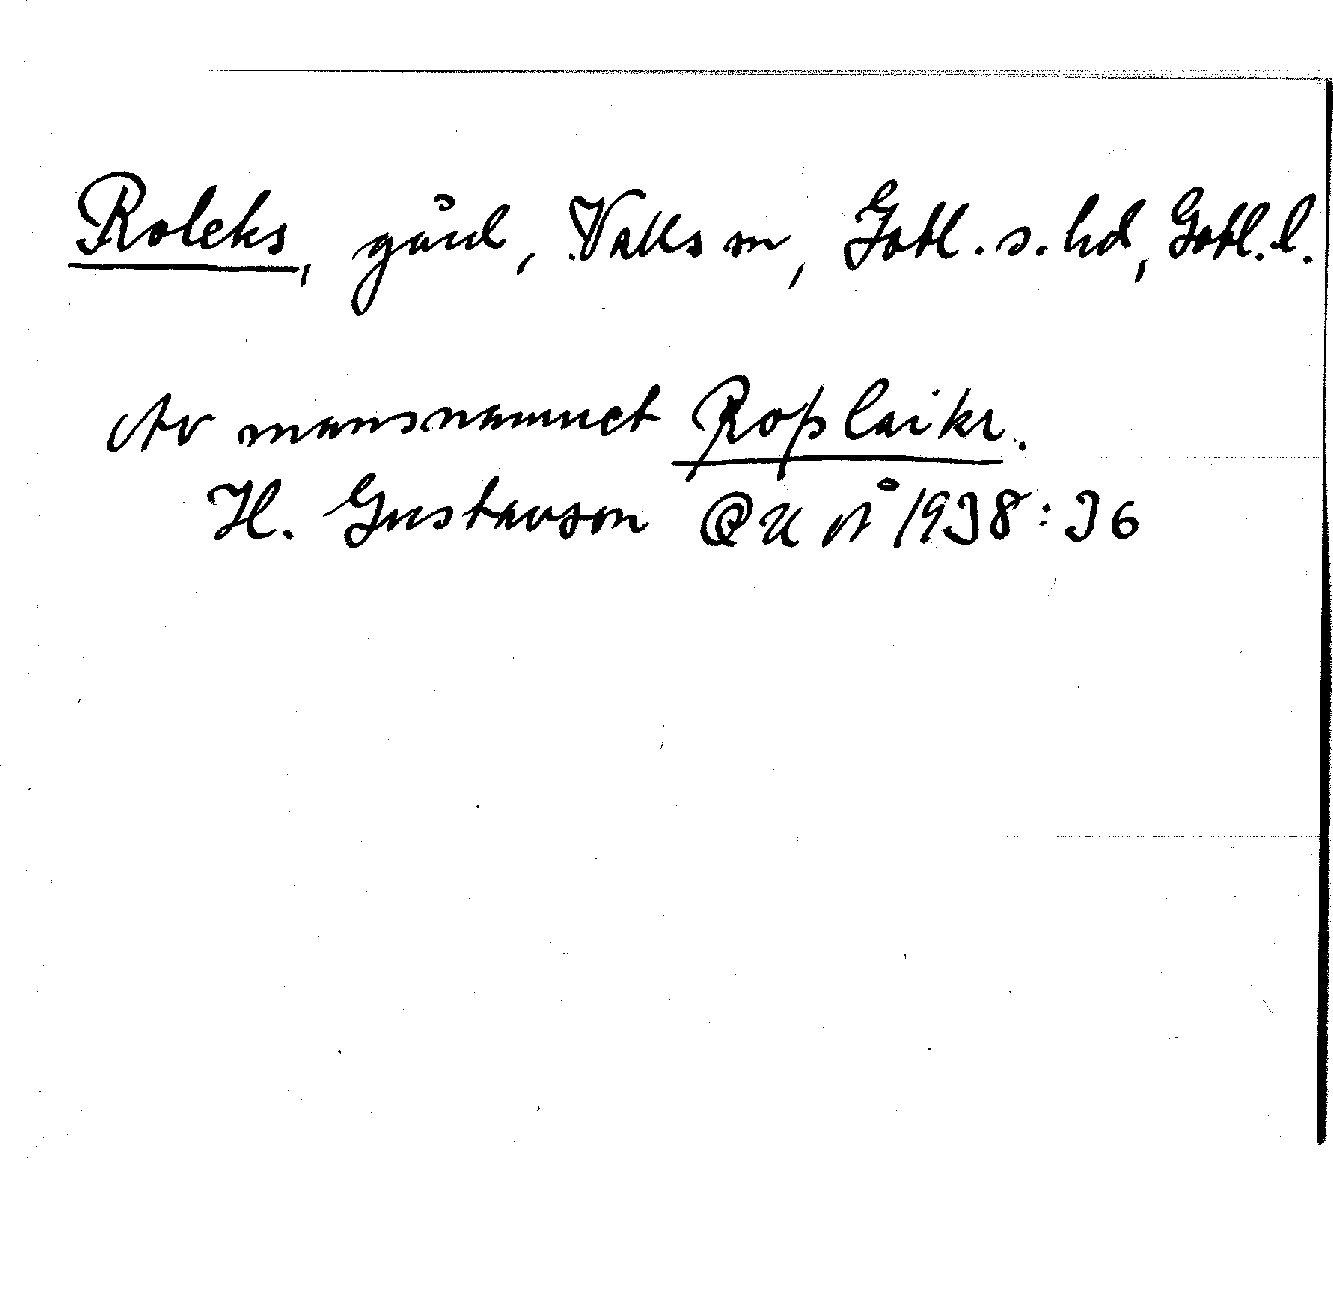 Roleks, gård, Valls sn, Gotl. s. hd, Gotl. l.
Av mansnamnet Roþlaikr.
H. Gustavson UUÅ 1938:36